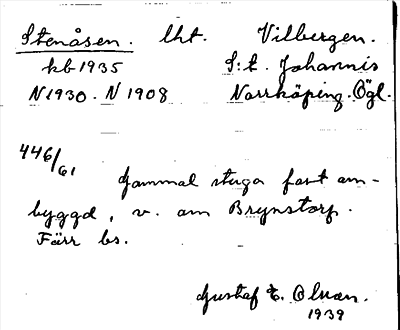 Stenåsen. lht. Vilbergen.
kb 1935 S:t. Johannis
N 1930. N 1908 Norrköping. Ögl.
446/61 Gammal stuga fast om-
byggd, v. om Brynstorp.
Färr bs.
Gustaf E. Olson.
1939